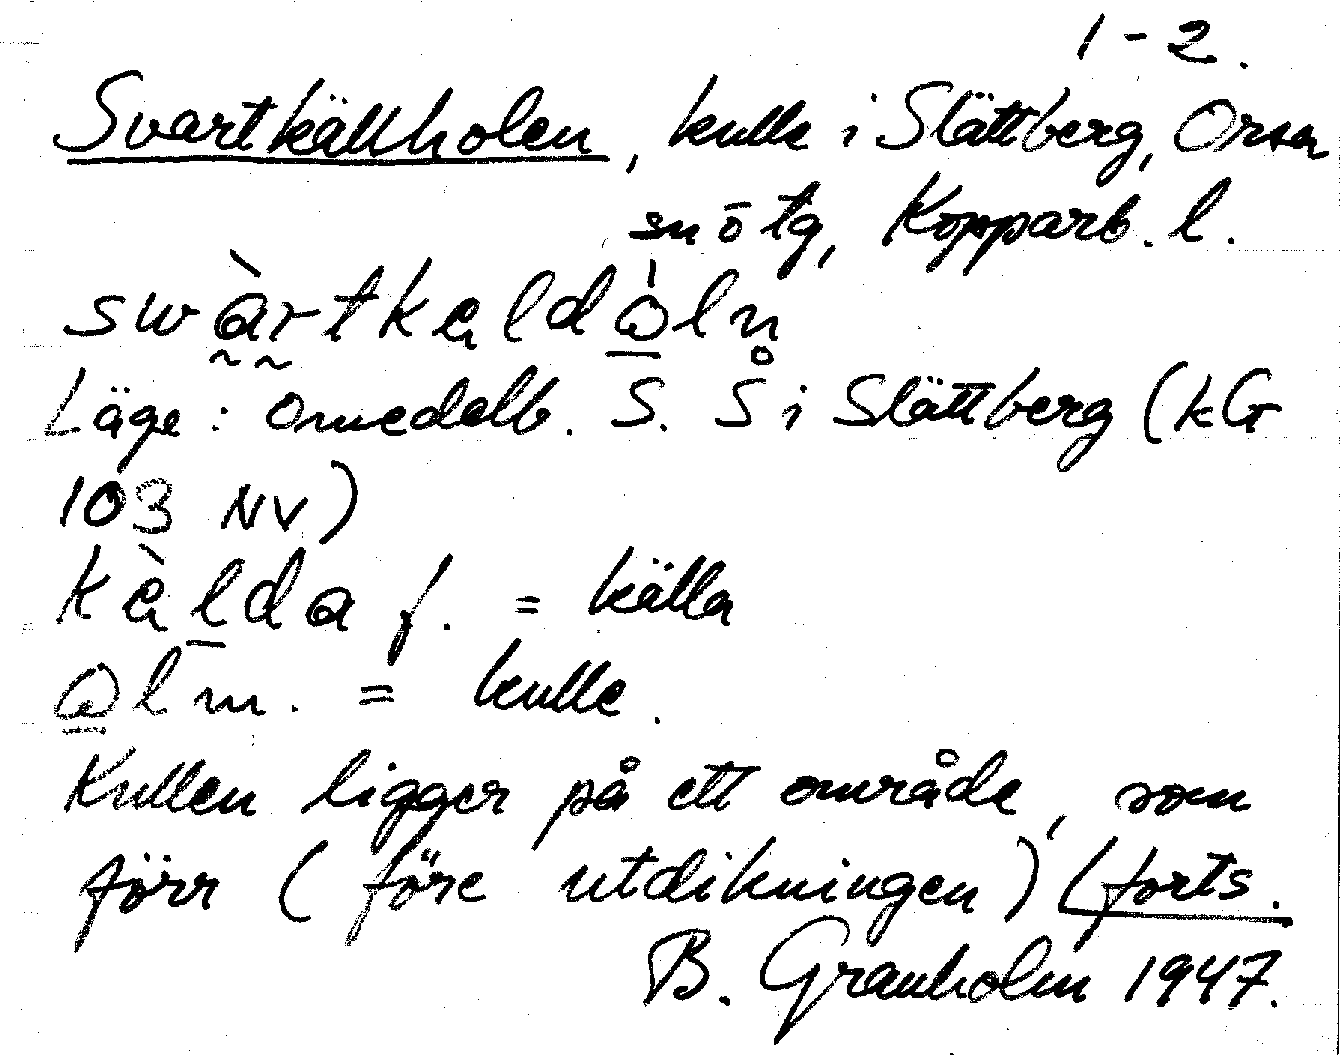 1-2.
Svartkällholen, kulle i Slättberg, Orsa
sn ö tg, Kopparb. l.
swàrtkeldo̲ln̥
Läge: omedelb. S. S̊ i Slättberg (kG
103 NV)
kèl̲da f. = källa
o̲l m. = kulle.
Kullen ligger på ett område, som
förr (före utdikningen) (forts.
B. Granholm 1947.